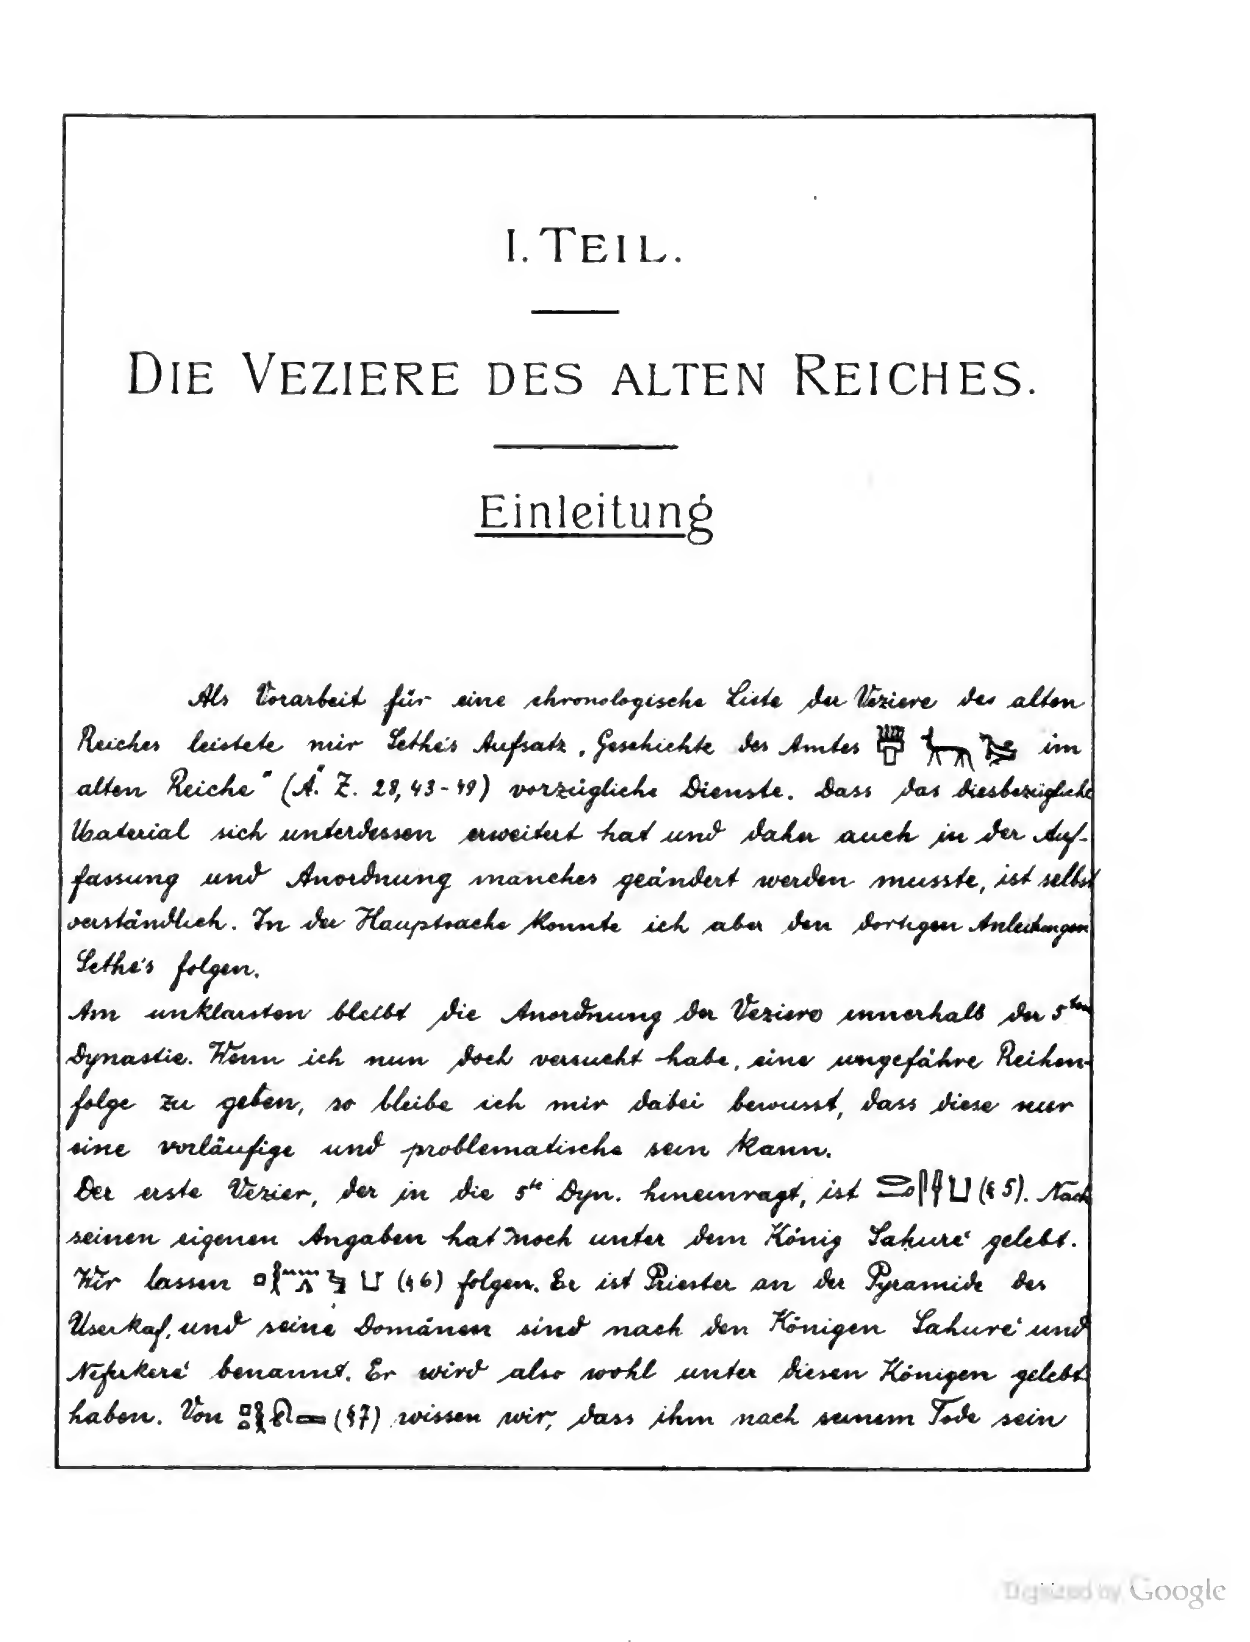 I. TEIL.
DIE VEZIERE DES ALTEN REICHES.
Einleitung
Als Vorarbeit für eine chronologische Liste der Veziere des alten
Reiches leistete mir Sethe's Aufsatz „Geschichte des Amtes im
alten Reiche" (Ä. Z. 28, 43-49) vorzügliche Dienste. Dass das diesbezügliche
Material sich unterdessen erweitert hat und daher auch in der Auf-
fassung und Anordnung manches geändert werden musste, ist selbst
verständlich. In der Hauptsache konnte ich aber den dortigen Anleitungen
Sethe's folgen.
Am unklarsten bleibt die Anordnung der Veziere innerhalb der 5ten
Dynastie. Wenn ich nun doch versucht habe, eine ungefähre Reihen-
folge zu geben, so bleibe ich mir dabei bewusst, dass diese nur
eine vorläufige und problematische sein kann.
Der erste Vezier, der in die 5te Dyn. hineinragt, ist (§ 5). Nach
seinen eigenen Angaben hat noch unter dem König Sahure' gelebt.
Wir lassen (§ 6) folgen. Er ist Priester an der Pyramide des
Userkaf, und seine Domänen sind nach den Königen Sahure' und
Neferkere' benannt. Er wird also wohl unter diesen Königen gelebt
haben. Von (§ 7) wissen wir, dass ihm nach seinem Tode sein
Digitized by Google